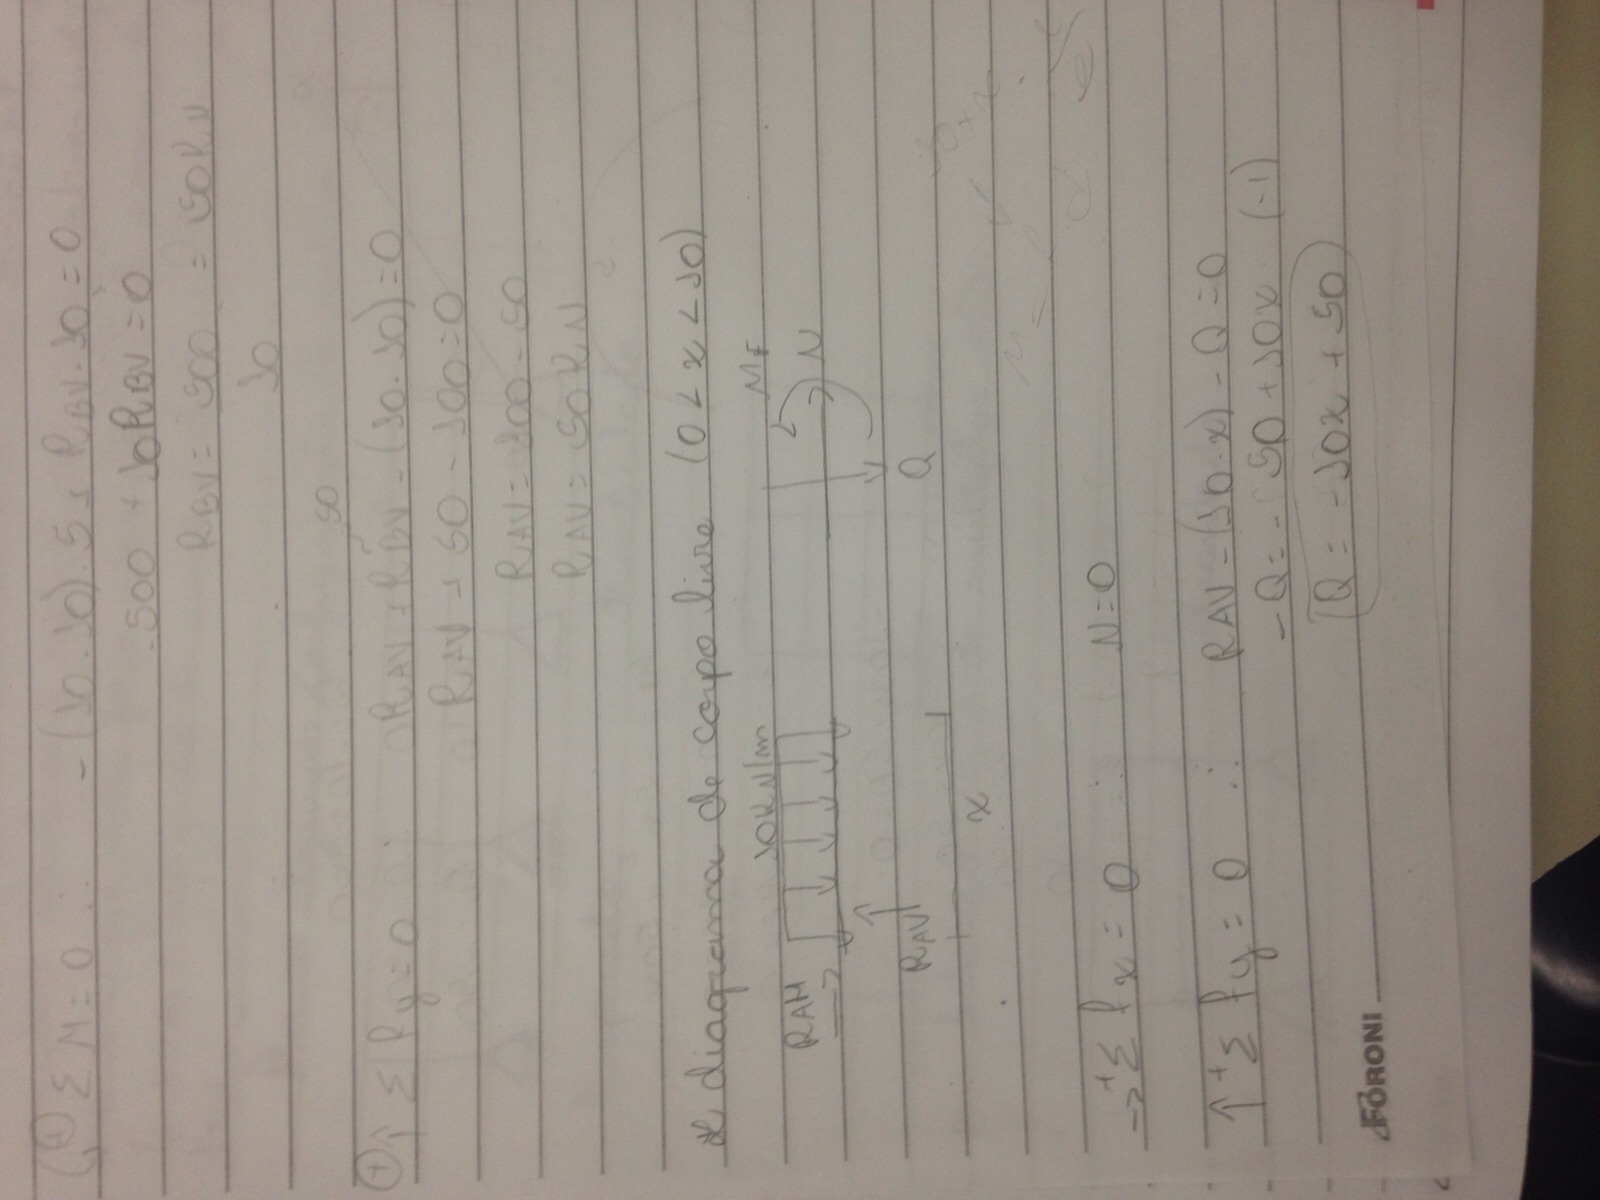 (+ Σ M = 0 ∴ - (10.10).5 + RBV.10 = 0
-500 + 10RBV = 0
RBV = 500 = 50KN
10
(+)↑ Σ Fy = 0 ∴ RAV + RBV - (10.10) = 0
50
RAV + 50 - 100 = 0
RAV = 100 - 50
RAV = 50KN
* diagrama de corpo livre (0 < x < 10)
10KN/m MF
RAH → N
RAV Q
x
→+ Σ Fx = 0 ∴ N = 0
↑+ Σ Fy = 0 ∴ RAV - (10.x) - Q = 0
-Q = -50 + 10x (-1)
Q = -10x + 50
FORONI